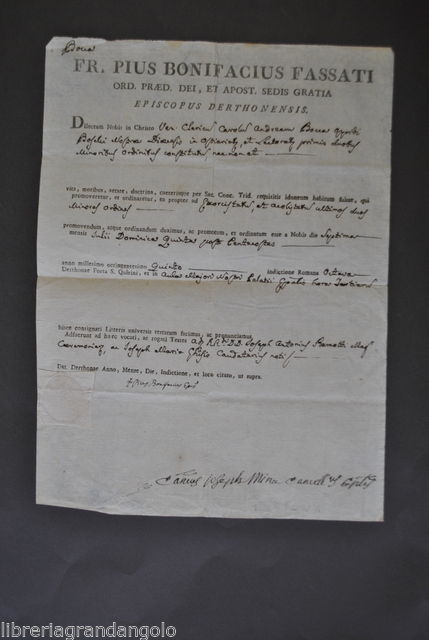 Bova
FR. PIUS BONIFACIUS FASSATI
ORD. PRÆD. DEI, ET APOST. SEDIS GRATIA
EPISCOPUS DERTHONENSIS.
Dilectum Nobis in Christo Ven. Clericum Carolum Andream Bova
Nostræ Diœcesis in Ostiariatu, et Lectoratu primis duobus
Minoribus Ordinibus constitutum nec non et
vita, moribus, ætate, doctrina, cæterisque per Sac. Conc. Trid. requisitis idoneum habitum fuisse, qui
promoveretur, et ordinaretur, ea propter ad Exorcistatus, et Acolytatus ultimos duos
Minores Ordines
promovendum, atque ordinandum duximus, ac promotum, et ordinatum esse a Nobis die Septima
mensis Julii Dominica Quinta post Pentecostes
anno millesimo octingentesimo Quinto Indictione Romana Octava
Derthonæ Porta S. Quirini, et in Aula Majori Nostri Palatii
hisce consignari Litteris universis testatum facimus, ac pronunciamus.
Adfuerunt ad hæc vocati, ac rogati Testes Joseph Antonius
Cæremoniar. ac Joseph Maria Ghisio Caudatarius
Dat. Derthonæ Anno, Mense, Die, Indictione, et loco citato, ut supra.
F. Pius Bonifacius Eps
Joseph Mina
libreriagrandangolo